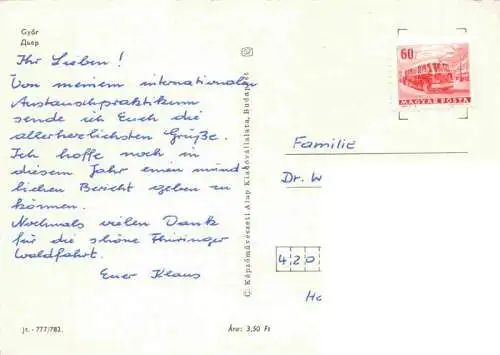 Győr
Дьер
Ihr Lieben!
Von meinem internationalen
Austauschpraktikum
sende ich Euch die
allerherzlichsten Grüße.
Ich hoffe noch in
diesem Jahr einen münd-
lichen Bericht geben zu
können.
Nochmals vielen Dank
für die schöne Thüringer
Waldfahrt.
Euer Klaus
jt. - 777/782.
Ára: 3,50 Ft
C: Képzőművészeti Alap Kiadóvállalata, Budapest
60f
MAGYAR POSTA
Familie
Dr. W
420
Ha